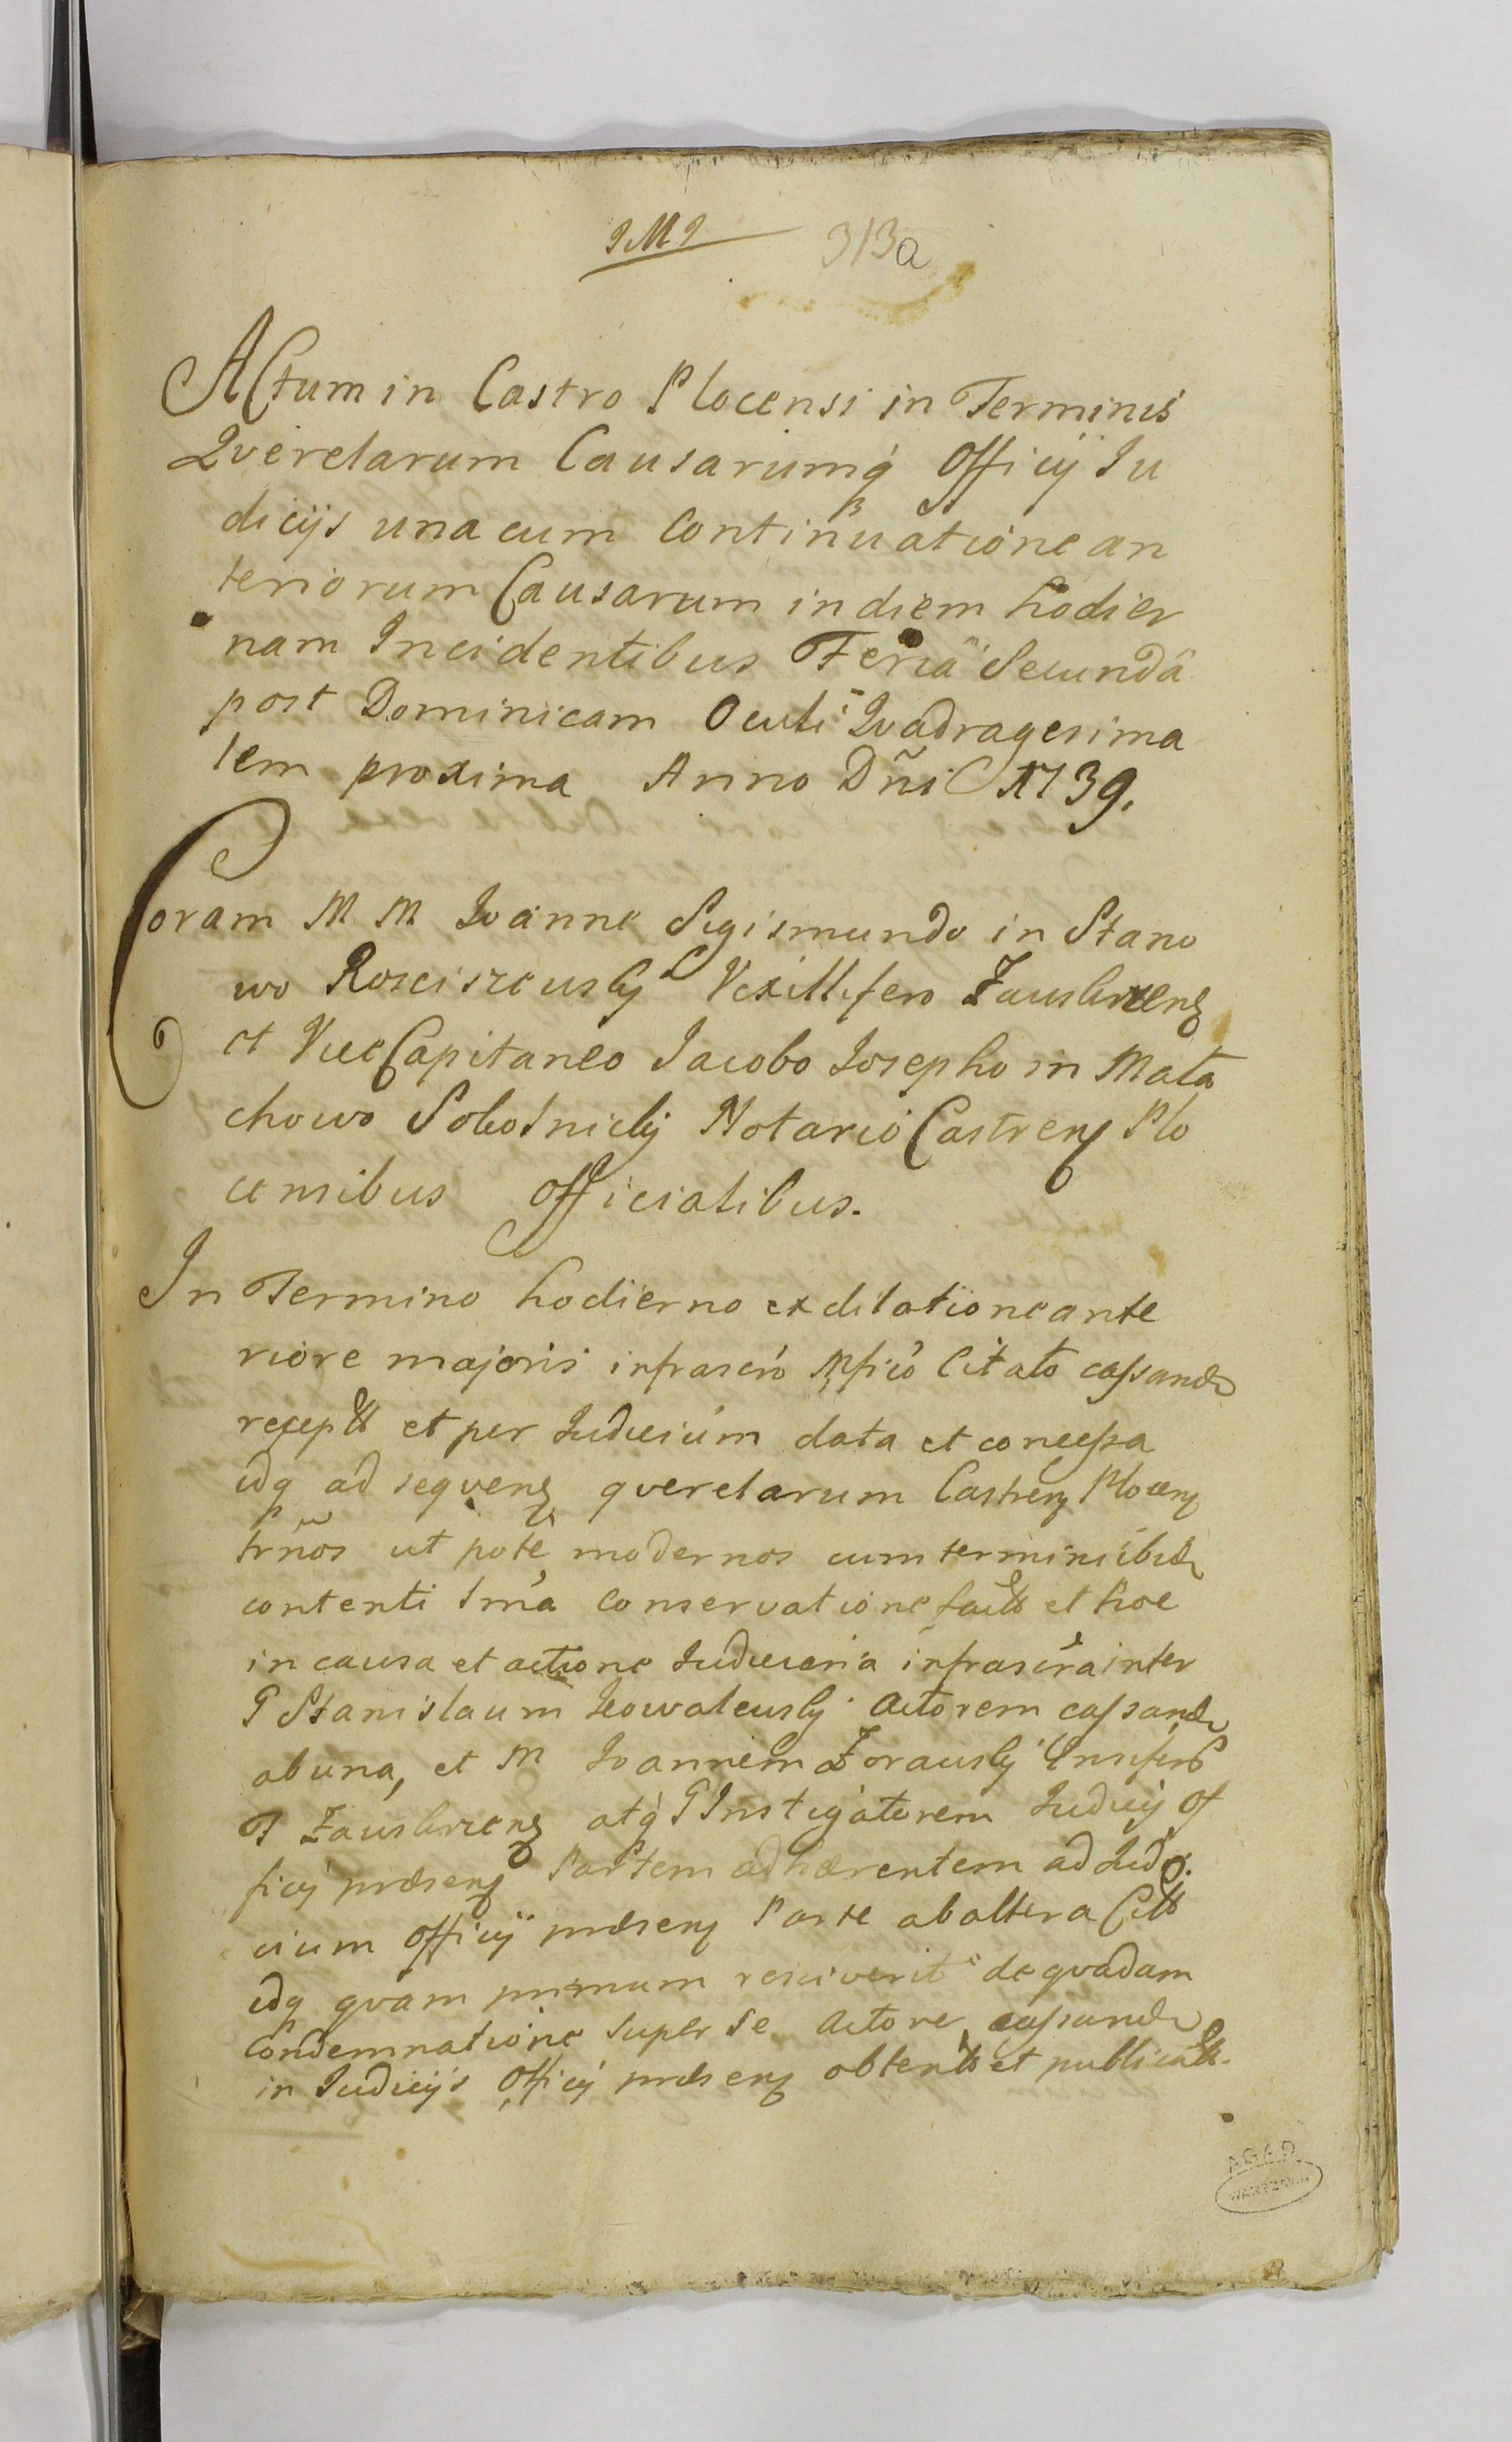 IMI 313a
Actum in Castro Plocensi in Terminis
Qverelarum Causarumq́ Officij Iu
dicijs una cum Continuatione an
teriorum Causarum in diem hodier
nam Incidentibus Feria Secunda
post Dominicam Oculi Qvadragesima
lem proxima Anno Dñi 1739.
Coram M M Ioanne Sigismundo in Stano
wo Rosciszewsky Vexillifero Zawskrzeng
et ViceCapitaneo Iacobo Iosepho in Mała
chowo Sobotnicky Notario Castreng Plo
censibus Officialibus.
In Termino hodierno ex dilatione ante
riore majoris infrascro Mfico Citato cassand
recepta et per Iudicium data et concessa
idq ad seqveng qverelarum Castreng Ploceng
trños ut pote modernos cum termini ibid
contenti trma conservatione facta et hoc
in causa et actione Iudiciaria infrascra inter
G Stanislaum Kowalewsky Actorem cassand
ab una, et M Ioannem Zorawsky Ensifero
T Zawskrzeng atq́ G Instigatorem Iudicij Of
ficij præseng Partem adhærentem ad Iudi
cium Officij præseng Parte ab altera Citt
idq qvam primum resciverit de qvadam
Condemnatione super se Actore, cassand
in Iudicijs Officij præseng obtenta et publicata.
AGAD
WARSZAWA